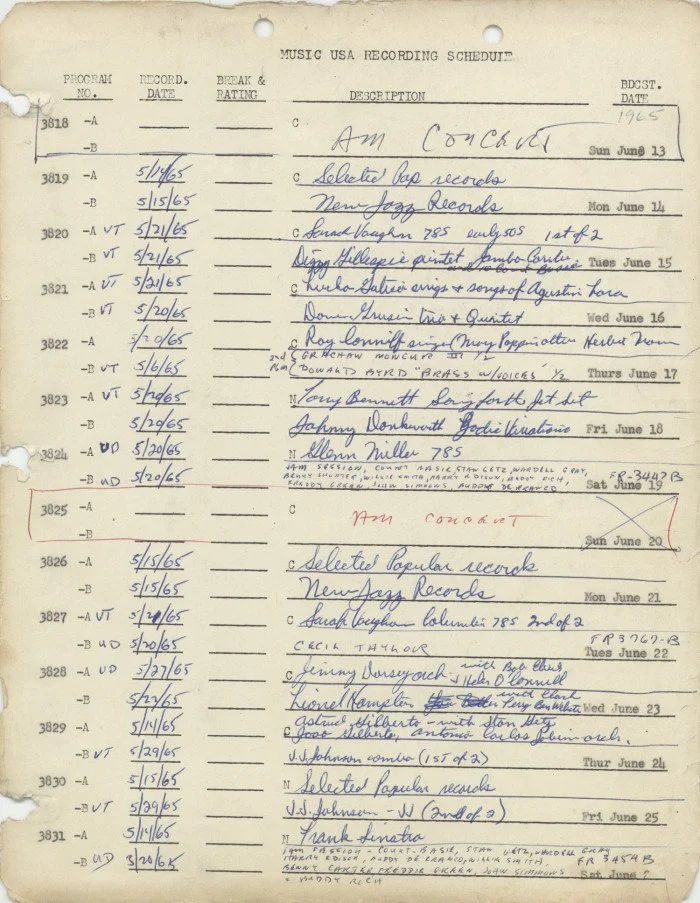 MUSIC USA RECORDING SCHEDULE
PROGRAM NO. RECORD. DATE BREAK & RATING DESCRIPTION BDCST. DATE
1965
3818 -A C AM CONCERT
-B Sun June 13
3819 -A 5/14/65 C Selected Pop records
-B 5/15/65 New Jazz Records Mon June 14
3820 -A VT 5/21/65 C Sarah Vaughn 78S early 50s 1st of 2
-B VT 5/21/65 Dizzy Gillespie quintet Jambo Caribe Tues June 15
3821 -A VT 5/21/65 C Lucho Gatica sings + songs of Agustin Lara
-B VT 5/20/65 Dave Grusin trio & Quintet Wed June 16
3822 -A 5/20/65 C Ray Conniff sings (Mary Poppins
2nd { GRACHAW MONCUR III 1/2
-B VT 5/6/65 Pgm ( DONALD BYRD "BRASS W/VOICES" 1/2 Thurs June 17
3823 -A VT 5/20/65 N Tony Bennett Songs for the Jet Set
-B 5/20/65 Johnny Dankworth Zodiac Variations Fri June 18
3824 -A UD 5/20/65 N Glenn Miller 78S
JAM SESSION, COUNT BASIE, STAN GETZ, WARDELL GRAY, FR-3447B
-B UD 5/20/65 BENNY CARTER, WILLIE SMITH, HARRY EDISON, BUDDY RICH, Sat June 19
FREDDY GREEN, JOHN SIMMONS, BUDDY DE FRANCO
3825 -A C AM CONCERT
-B Sun June 20
3826 -A 5/15/65 C Selected Popular records
-B 5/15/65 New Jazz Records Mon June 21
3827 -A VT 5/21/65 C Sarah Vaughan Columbia 78S 2nd of 2
FR3767-B
-B UD 5/20/65 CECIL TAYLOR Tues June 22
3828 -A UD 5/27/65 C Jimmy Dorsey orch with Bob Eberly
& Helen O'Connell
-B 5/22/65 Lionel Hampton with Clark Terry Ben Webster Wed June 23
3829 -A 5/14/65 Astrud Gilberto - with Stan Getz
C Joao Gilberto, Antonio Carlos Jobim orch.
-B VT 5/29/65 J.J. Johnson combo (1ST of 2) Thur June 24
3830 -A 5/15/65 N Selected Popular records
-B VT 5/29/65 J.J. Johnson - JJ (2nd of 2) Fri June 25
3831 -A 5/14/65 N Frank Sinatra
JAM SESSION - COUNT BASIE, STAN GETZ, WARDELL GRAY
-B UD 5/20/65 HARRY EDISON, BUDDY DE FRANCO, WILLIE SMITH, FR 3454B
BENNY CARTER, FREDDIE GREEN, JOHN SIMMONS Sat June
& BUDDY RICH